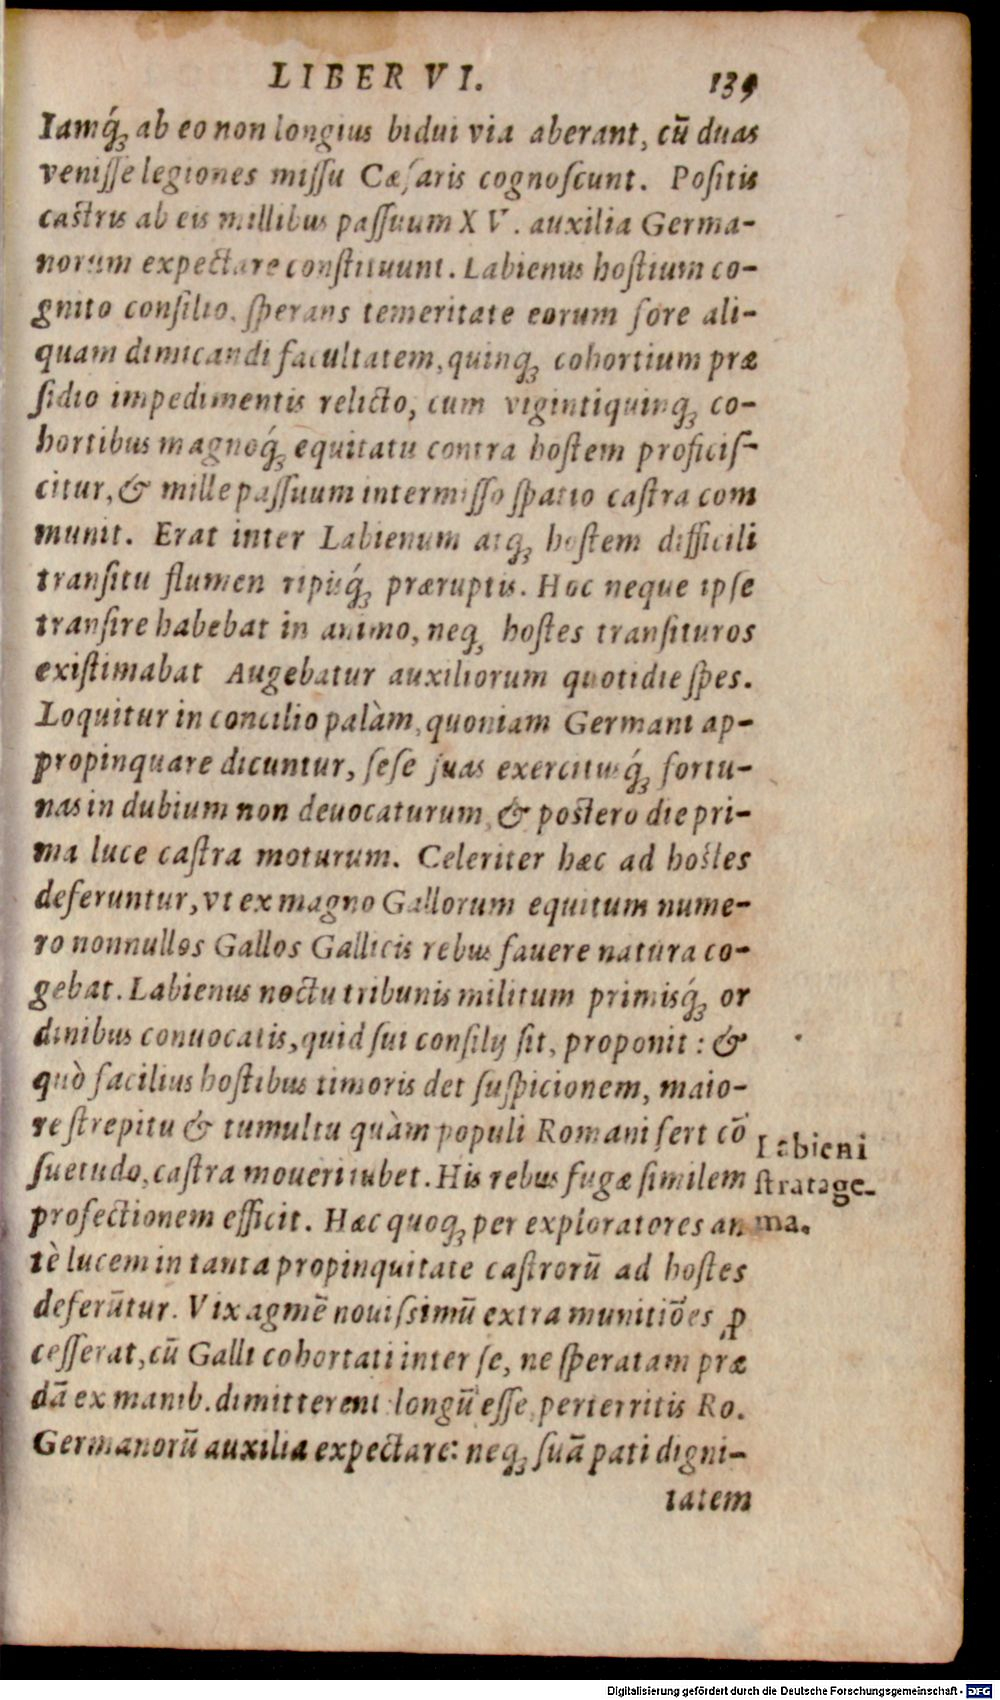 LIBER VI. 139
Iamq́ꝫ ab eo non longius bidui via aberant, cū duas
venisse legiones missu Cæsaris cognoscunt. Positis
castris ab eis millibus passuum XV. auxilia Germa-
norum expectare constituunt. Labienus hostium co-
gnito consilio, sperans temeritate eorum fore ali-
quam dimicandi facultatem, quinqꝫ cohortium præ
sidio impedimentis relicto, cum vigintiquinqꝫ co-
hortibus magnoq́ꝫ equitatu contra hostem proficis-
citur, & mille passuum intermisso spatio castra com
munit. Erat inter Labienum atqꝫ hostem difficili
transitu flumen ripisq́ꝫ præruptis. Hoc neque ipse
transire habebat in animo, neqꝫ hostes transituros
existimabat Augebatur auxiliorum quotidie spes.
Loquitur in concilio palàm, quoniam Germani ap-
propinquare dicuntur, sese suas exercitusq́ꝫ fortu-
nas in dubium non deuocaturum, & postero die pri-
ma luce castra moturum. Celeriter hæc ad hostes
deferuntur, vt ex magno Gallorum equitum nume-
ro nonnullos Gallos Gallicis rebus fauere natura co-
gebat. Labienus noctu tribunis militum primisq́ꝫ or
dinibus conuocatis, quid sui consilij sit, proponit: &
quò facilius hostibus timoris det suspicionem, maio-
re strepitu & tumultu quàm populi Romani fert cō
suetudo, castra moueri iubet. His rebus fugæ similem
profectionem efficit. Hæc quoqꝫ per exploratores an
tè lucem in tanta propinquitate castrorū ad hostes
deferūtur. Vix agmē nouissimū extra munitiōes ꝓ
cesserat, cū Galli cohortati inter se, ne speratam præ
dā ex manib. dimitterent longū esse, perterritis Ro.
Germanorū auxilia expectare: neqꝫ suā pati digni-
tatem
Labieni
stratage-
ma.
Digitalisierung gefördert durch die Deutsche Forschungsgemeinschaft - DFG